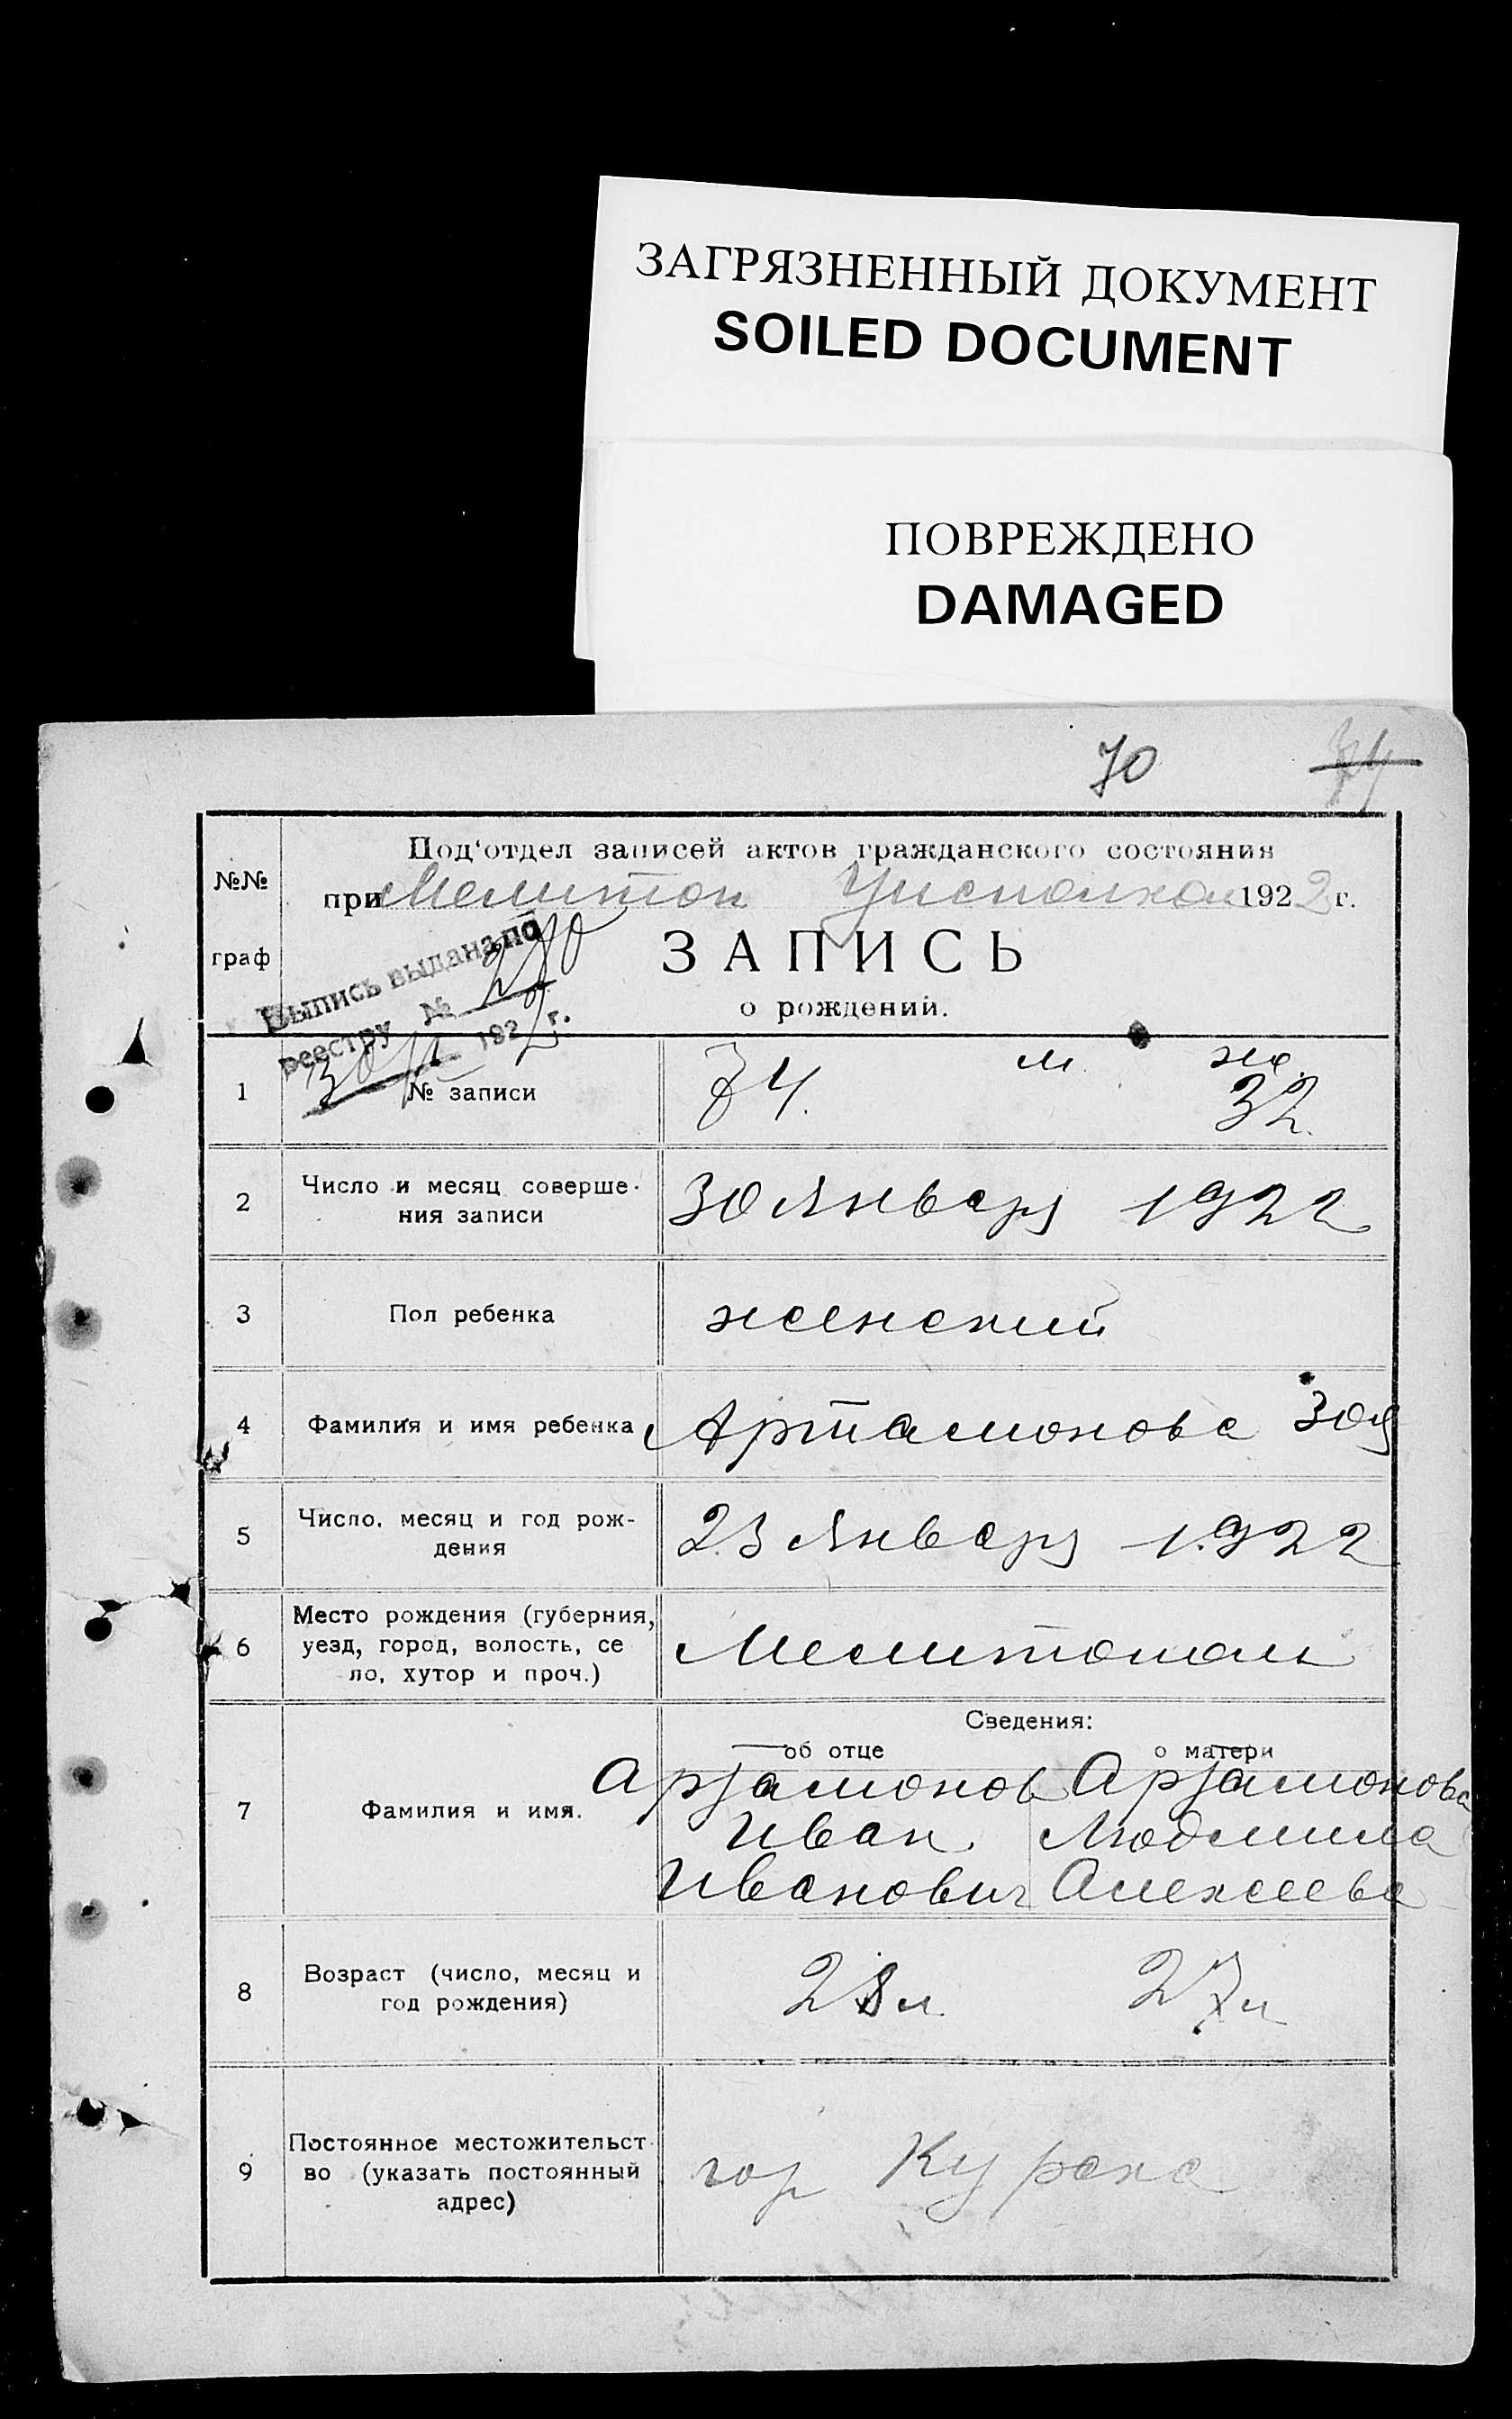 ЗАГРЯЗНЕННЫЙ ДОКУМЕНТ
SOILED DOCUMENT
ПОВРЕЖДЕНО
DAMAGED
70
74
№№
граф
Под‘отдел записей актов гражданского состояния
при Мелитоп Уисполком 1922 г.
Выпись выдана по
реестру №
30/I 1922 г.
ЗАПИСЬ
о рождений.
1 № записи 74. м. ж. 32.
2 Число и месяц соверше-
ния записи
30 Января 1922
3 Пол ребенка женский
4 Фамилия и имя ребенка Артамонова Зоя
5 Число, месяц и год рож-
дения
23 Января 1922
6 Место рождения (губерния,
уезд, город, волость, се
ло, хутор и проч.)
Мелитополь
Сведения:
об отце о матери
7 Фамилия и имя.
Артамонов Артамонова
Иван Людмила
Иванович Алексеева
8 Возраст (число, месяц и
год рождения)
28 л 27 л
9 Постоянное местожительст
во (указать постоянный
адрес)
гор Курска